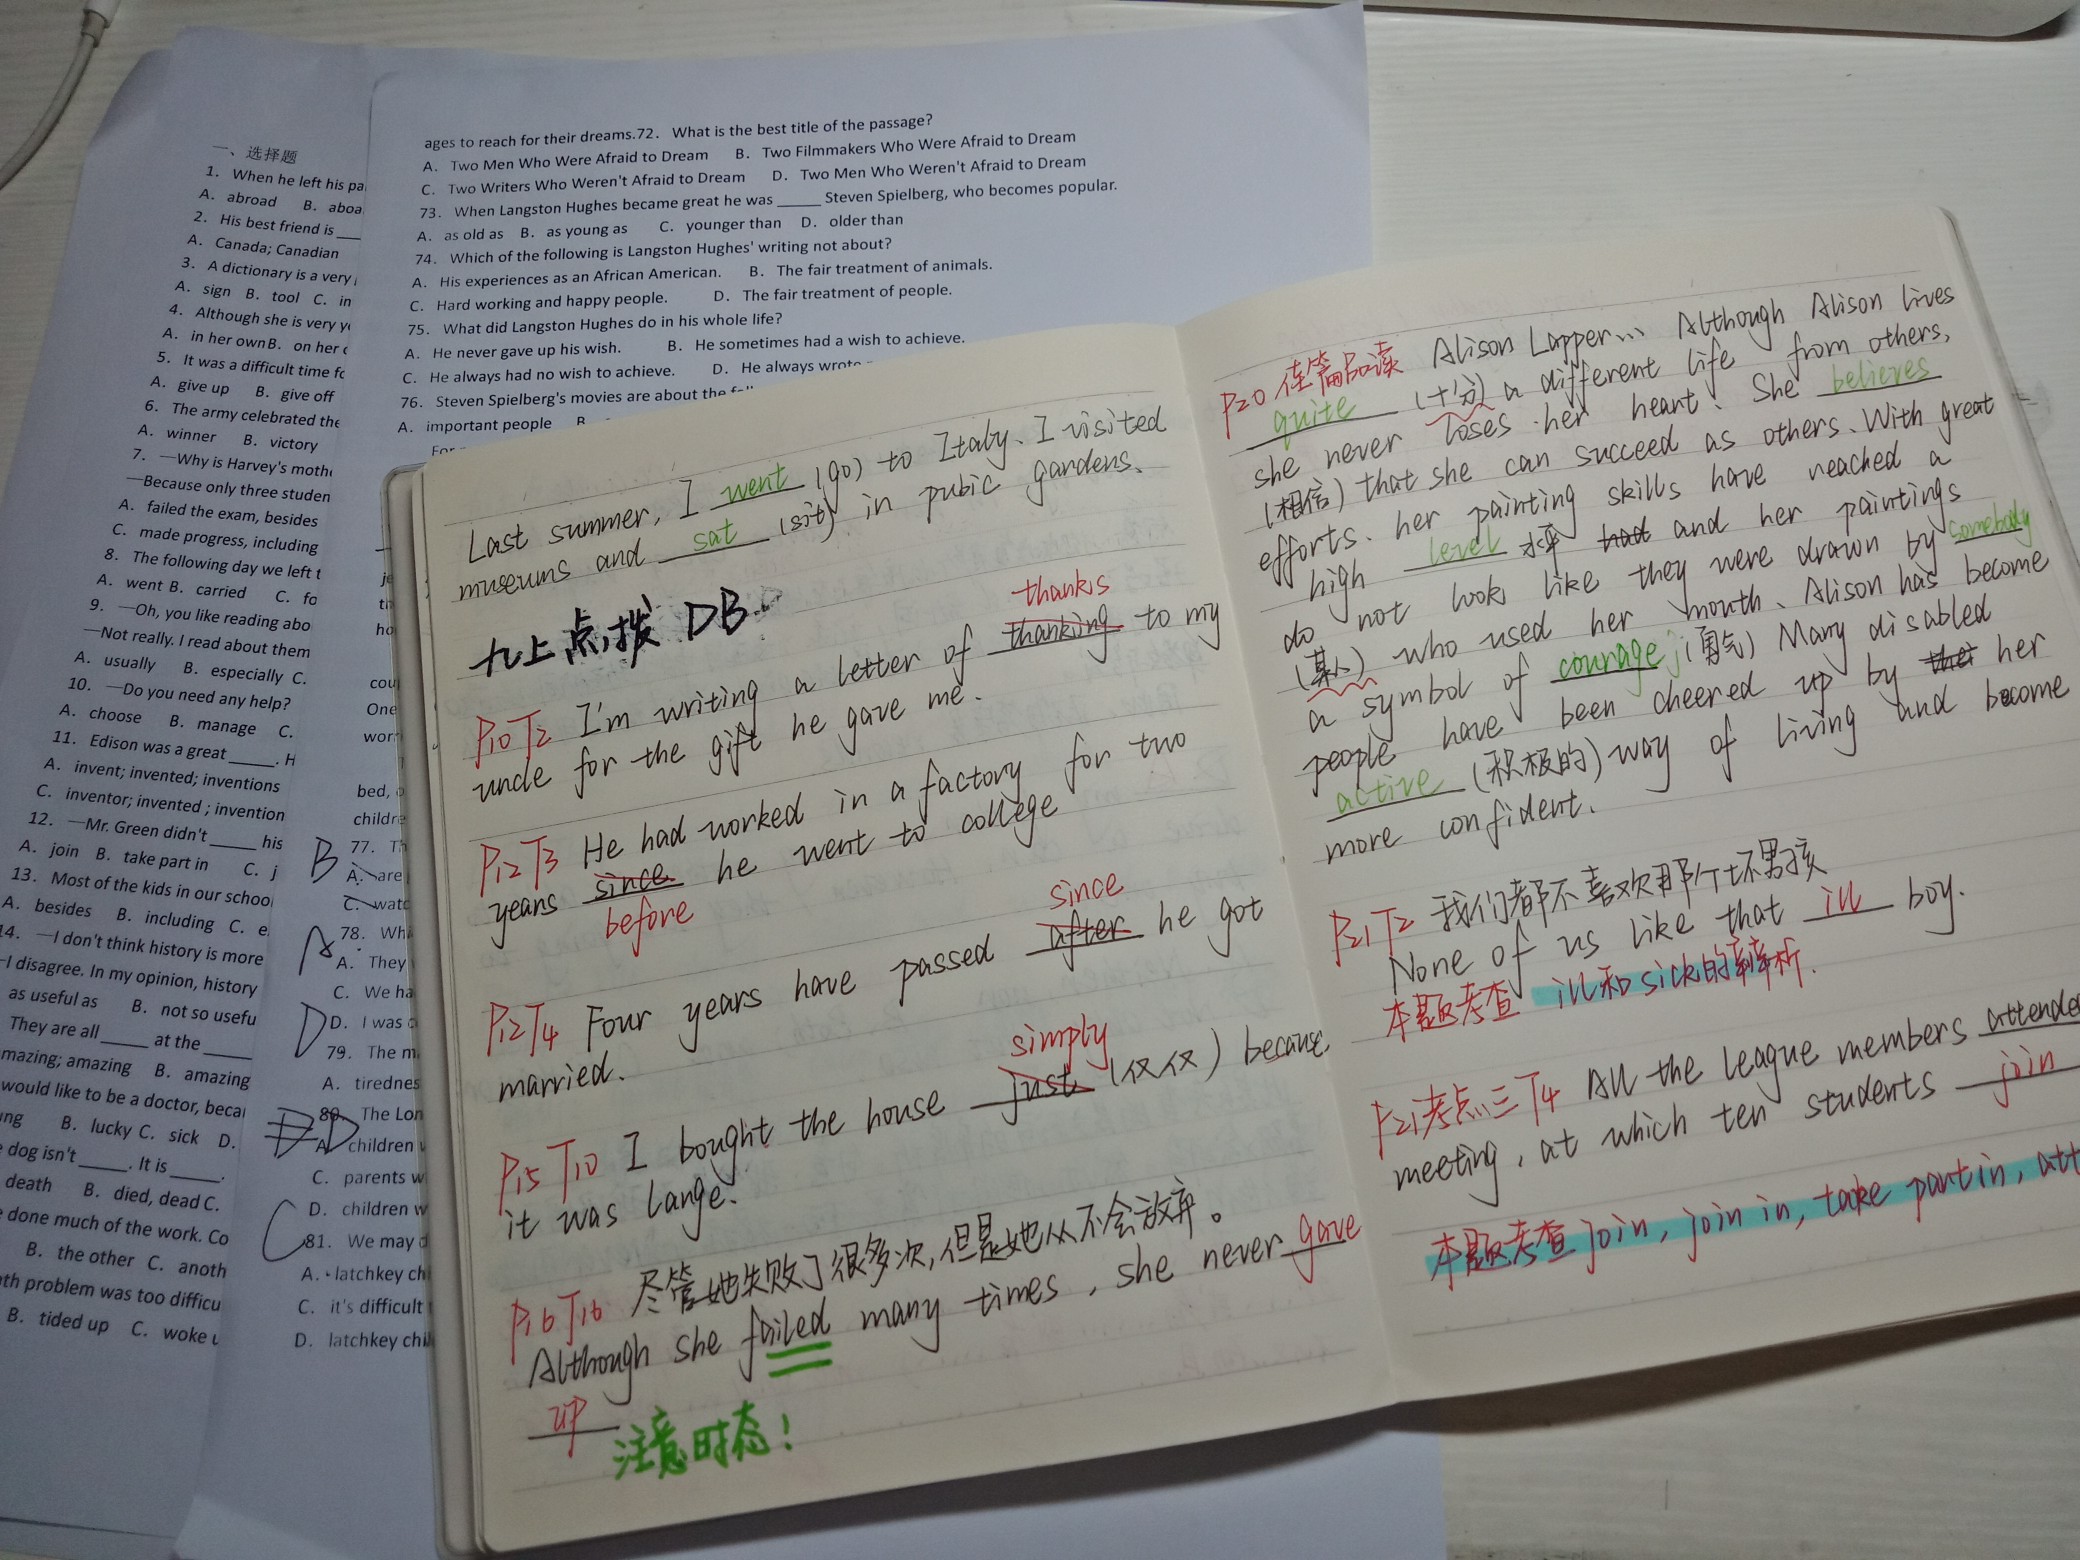 一、选择题
1. When he left his pa
A. abroad B. aboa
2. His best friend is ____
A. Canada; Canadian
3. A dictionary is a very
A. sign B. tool C. in
4. Although she is very y
A. in her own B. on her
5. It was a difficult time fo
A. give up B. give off
6. The army celebrated the
A. winner B. victory
7. —Why is Harvey's moth
—Because only three studen
A. failed the exam, besides
C. made progress, including
8. The following day we left t
A. went B. carried C. fo
9. —Oh, you like reading abo
—Not really. I read about them
A. usually B. especially C.
10. —Do you need any help?
A. choose B. manage C.
11. Edison was a great ____. H
A. invent; invented; inventions
C. inventor; invented ; invention
12. —Mr. Green didn't ____ his
A. join B. take part in C. j
13. Most of the kids in our schoo
A. besides B. including C. e
4. —I don't think history is more
-I disagree. In my opinion, history
as useful as B. not so usefu
They are all ____ at the ____
mazing; amazing B. amazing
would like to be a doctor, beca
ng B. lucky C. sick D.
dog isn't ____. It is ____.
death B. died, dead C.
done much of the work. Co
B. the other C. anoth
th problem was too difficu
B. tided up C. woke u
ages to reach for their dreams.72. What is the best title of the passage?
A. Two Men Who Were Afraid to Dream B. Two Filmmakers Who Were Afraid to Dream
C. Two Writers Who Weren't Afraid to Dream D. Two Men Who Weren't Afraid to Dream
73. When Langston Hughes became great he was ____ Steven Spielberg, who becomes popular.
A. as old as B. as young as C. younger than D. older than
74. Which of the following is Langston Hughes' writing not about?
A. His experiences as an African American. B. The fair treatment of animals.
C. Hard working and happy people. D. The fair treatment of people.
75. What did Langston Hughes do in his whole life?
A. He never gave up his wish. B. He sometimes had a wish to achieve.
C. He always had no wish to achieve. D. He always wrote
76. Steven Spielberg's movies are about the
A. important people B
je
ho
cou
One
wor
bed,
childre
B 77. Th
A. are
C. watc
A 78. Wh
A. They
C. We ha
D D. I was
79. The m
A. tirednes
D 80. The Lon
A. children
C. parents w
D. children w
C 81. We may
A. latchkey ch
C. it's difficult
D. latchkey chil
Last summer, I went (go) to Italy. I visited
museums and sat (sit) in pubic gardens.
九上点拨 DB
thanks
P10 T2 I'm writing a letter of thanking to my
uncle for the gift he gave me.
P12 T3 He had worked in a factory for two
years since he went to college
before
since
P12 T4 Four years have passed after he got
married.
simply
P15 T10 I bought the house just (仅仅) because
it was large.
P16 T16 尽管她失败了很多次,但是她从不会放弃。
Although she failed many times, she never gave
up
注意时态!
P20 佳篇品读 Alison Lapper... Although Alison lives
quite (十分) a different life from others,
she never loses her heart. She believes
(相信) that she can succeed as others. With great
efforts, her painting skills have reached a
high level 水平 had and her paintings
do not look like they were drawn by somebody
(某人) who used her mouth. Alison has become
a symbol of courage (勇气) Many disabled
people have been cheered up by her
active (积极的) way of living and become
more confident.
P21 T2 我们都不喜欢那个坏男孩
None of us like that ill boy.
本题考查 ill和sick的辨析.
P21考点三 T4 All the league members attended
meeting, at which ten students join
本题考查 join, join in, take part in, att